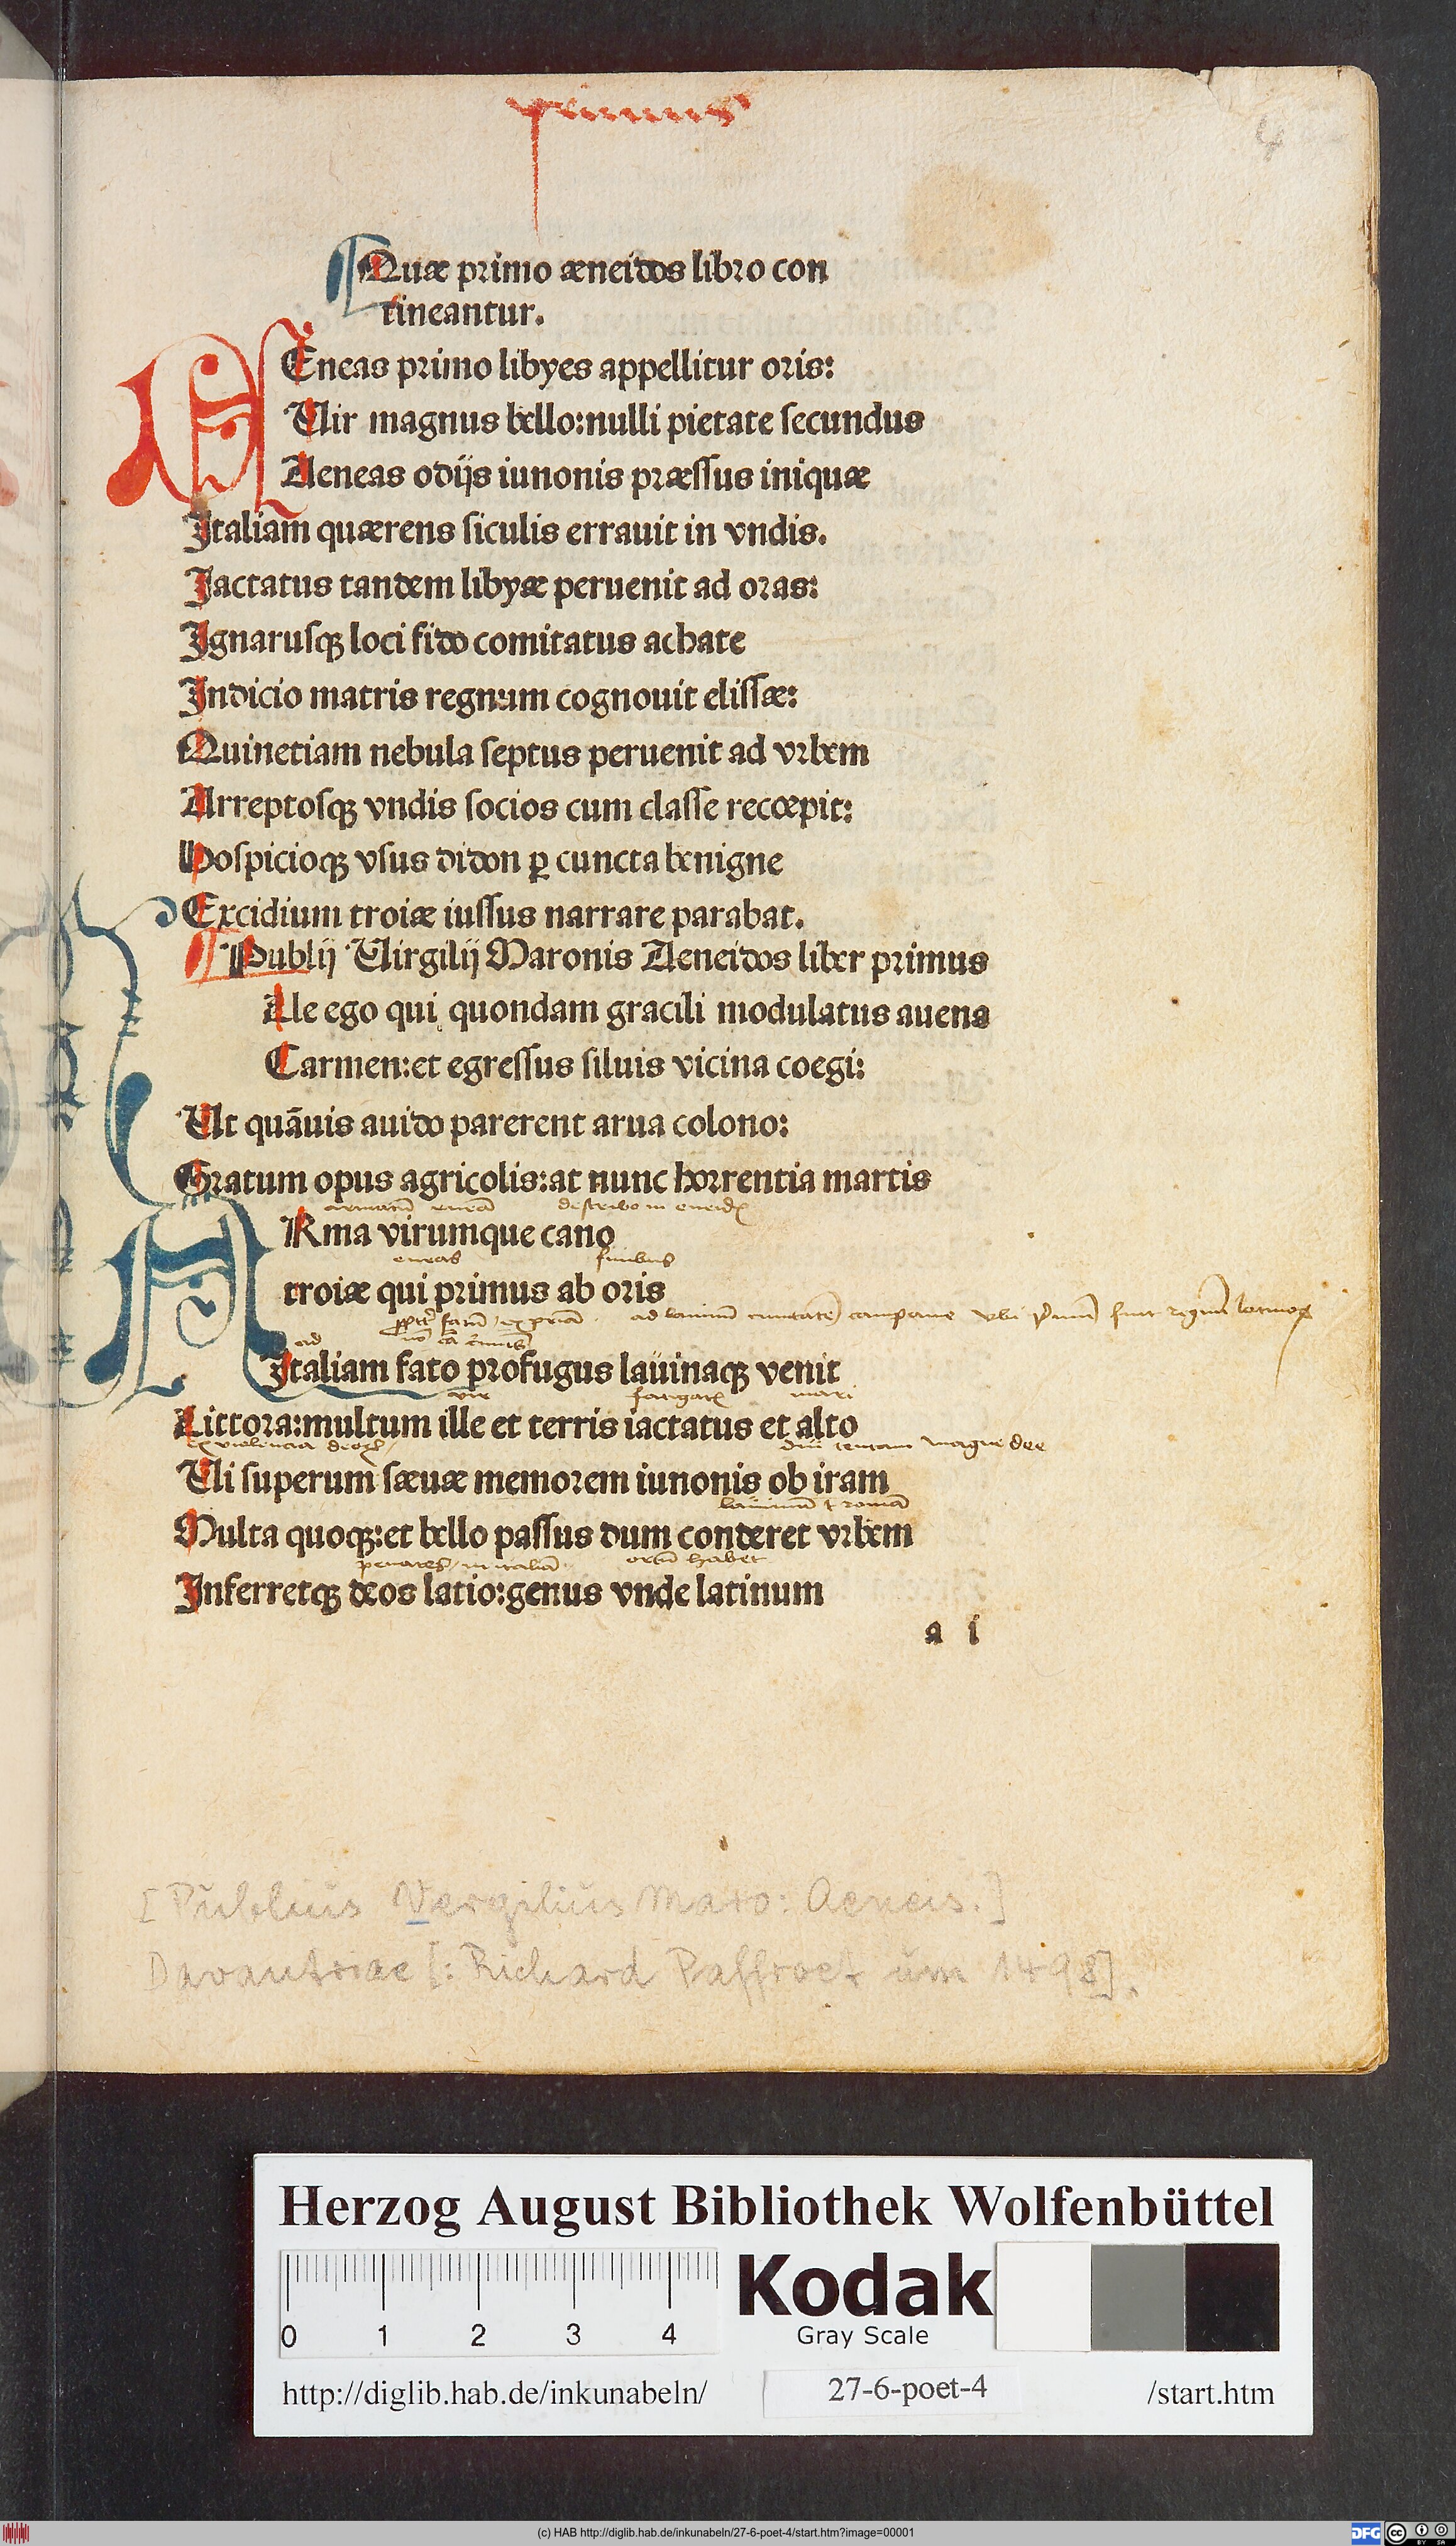 primus
4
Quæ primo æneidos libro con
tineantur.
Eneas primo libyes appellitur oris:
Uir magnus bello:nulli pietate secundus
Aeneas odijs iunonis præssus iniquæ
Italiam quærens siculis errauit in vndis.
Iactatus tandem libyæ peruenit ad oras:
Ignarusqꝫ loci fido comitatus achate
Indicio matris regnum cognouit elissæ:
Quinetiam nebula septus peruenit ad vrbem
Arreptosqꝫ vndis socios cum classe recœpit:
Hospicioqꝫ vsus didon ꝑ cuncta benigne
Excidium troiæ iussus narrare parabat.
Publij Uirgilij Maronis Aeneidos liber primus
Ile ego qui quondam gracili modulatus auena
Carmen:et egressus siluis vicina coegi:
Ut quāuis auido parerent arua colono:
Gratum opus agricolis:at nunc horrentia martis
armatū eneā describo in
ARma virumque cano
eneas finibus
troiæ qui primus ab oris
ad lauinū ciuitatē campanie vbi primū fuit regnū
ad
Italiam fato profugus lauinaqꝫ venit
vir mari
Littora:multum ille et terris iactatus et alto
magne dee
Ui superum sæuæ memorem iunonis ob iram
lauinum romā
Multa quoqꝫ:et bello passus dum conderet vrbem
penates in italiā ortū habet
Inferretqꝫ deos latio:genus vnde latinum
a i
[Publius Vergilius Maro: Aeneis.]
Davantriae [: Richard Paffroet um 1498].
Herzog August Bibliothek Wolfenbüttel
0 1 2 3 4
Kodak
Gray Scale
http://diglib.hab.de/inkunabeln/ 27-6-poet-4 /start.htm
(c) HAB http://diglib.hab.de/inkunabeln/27-6-poet-4/start.htm?image=00001
DFG
cc
BY SA